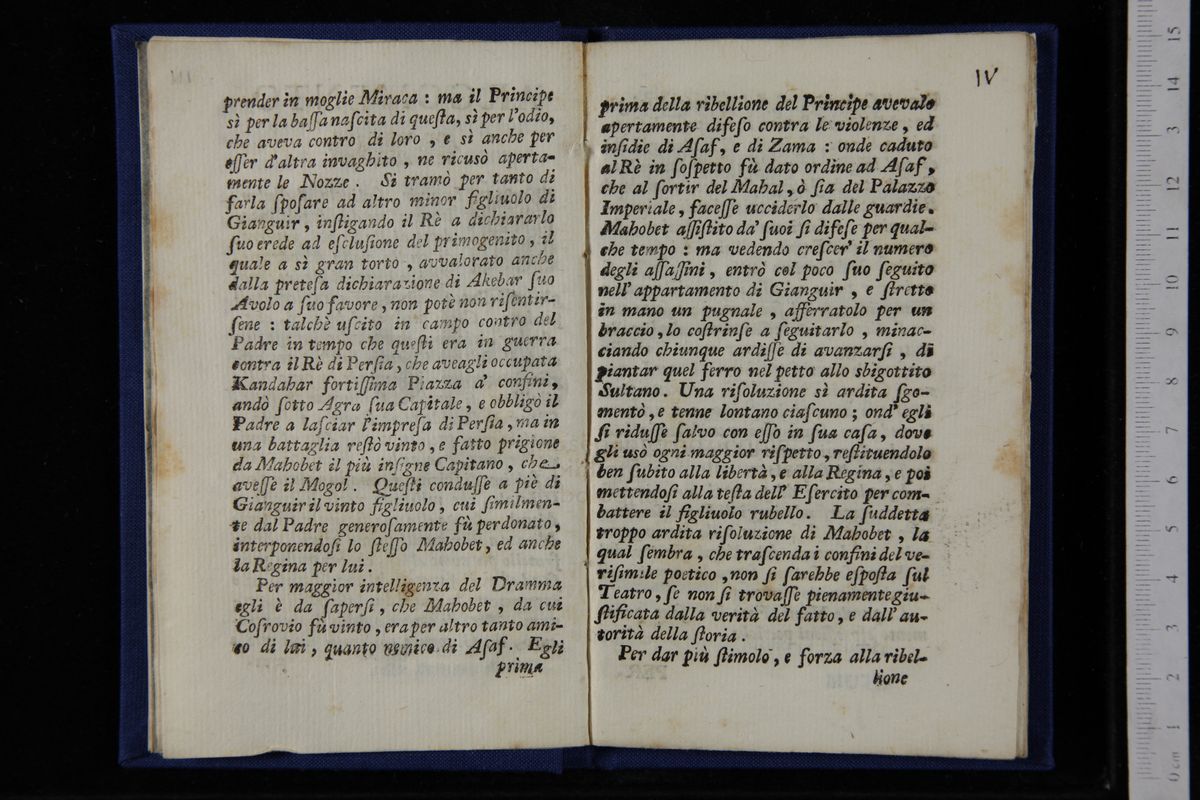 prender in moglie Miraca : ma il Principe
sì per la baſſa naſcita di queſta, sì per l'odio,
che aveva contro di loro , e sì anche per
eſſer d'altra invaghito , ne ricusò aperta-
mente le Nozze . Si tramò per tanto di
farla ſpoſare ad altro minor figliuolo di
Gianguir , inſtigando il Rè a dichiararlo
ſuo erede ad eſcluſione del primogenito , il
quale a sì gran torto , avvalorato anche
dalla preteſa dichiarazione di Akebar ſuo
Avolo a ſuo favore , non potè non riſentir-
ſene : talchè uſcito in campo contro del
Padre in tempo che queſti era in guerra
contra il Rè di Perſia , che aveagli occupata
Kandahar fortiſſima Piazza a' confini ,
andò ſotto Agra ſua Capitale , e obbligò il
Padre a laſciar l'impreſa di Perſia , ma in
una battaglia reſtò vinto , e fatto prigione
da Mahobet il più inſigne Capitano , che
aveſſe il Mogol . Queſti conduſſe a piè di
Gianguir il vinto figliuolo , cui ſimilmen-
te dal Padre generoſamente fù perdonato ,
interponendoſi lo ſteſſo Mahobet , ed anche
la Regina per lui .
Per maggior intelligenza del Dramma
egli è da ſaperſi , che Mahobet , da cui
Coſrovio fù vinto , era per altro tanto ami-
co di lui , quanto nemico di Aſaf . Egli
prima
IV
prima della ribellione del Principe avevalo
apertamente difeſo contra le violenze , ed
inſidie di Aſaf , e di Zama : onde caduto
al Rè in ſoſpetto fù dato ordine ad Aſaf ,
che al ſortir del Mahal , ò ſia del Palazzo
Imperiale , faceſſe ucciderlo dalle guardie .
Mahobet aſſiſtito da' ſuoi ſi difeſe per qual-
che tempo : ma vedendo creſcer' il numero
degli aſſaſſini , entrò col poco ſuo ſeguito
nell' appartamento di Gianguir , e ſtretto
in mano un pugnale , afferratolo per un
braccio , lo coſtrinſe a ſeguitarlo , minac-
ciando chiunque ardiſſe di avanzarſi , di
piantar quel ferro nel petto allo sbigottito
Sultano . Una riſoluzione sì ardita ſgo-
mentò , e tenne lontano ciaſcuno ; ond' egli
ſi riduſſe ſalvo con eſſo in ſua caſa , dove
gli usò ogni maggior riſpetto , reſtituendolo
ben ſubito alla libertà , e alla Regina , e poi
mettendoſi alla teſta dell' Eſercito per com-
battere il figliuolo rubello . La ſuddetta
troppo ardita riſoluzione di Mahobet , la
qual ſembra , che traſcenda i confini del ve-
riſimile poetico , non ſi ſarebbe eſpoſta ſul
Teatro , ſe non ſi trovaſſe pienamente giu-
ſtificata dalla verità del fatto , e dall' au-
torità della ſtoria .
Per dar più ſtimolo , e forza alla ribel-
lione
0 cm 1 2 3 4 5 6 7 8 9 10 11 12 13 14 15